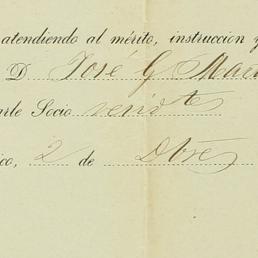 atendiendo al mérito, instruccion y
D José G Mac
arle Socio resid.te
ico, 2 de Dbre